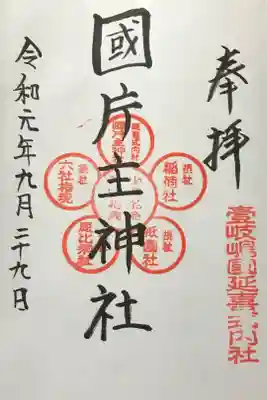 奉拝
壹岐嶋國延喜式内社
國片主神社
摂社
稲荷社
摂社
祇園社
恵比須社
六社権現
令和元年九月二十九日